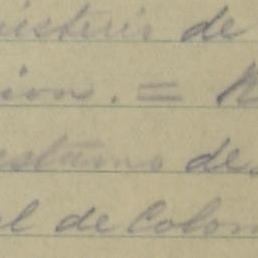 isterio de
ion. =
estamo de
al de Colom